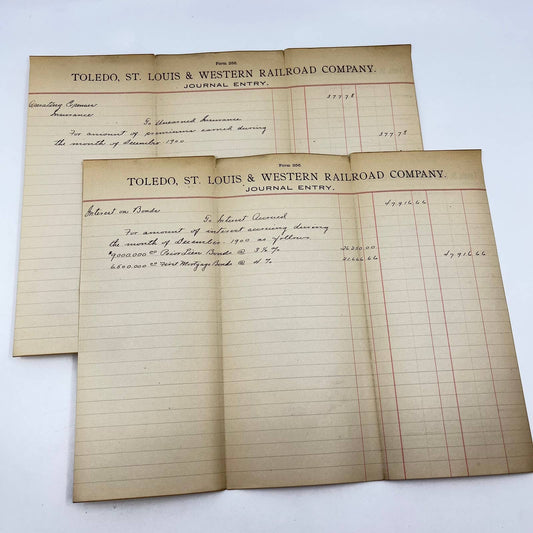 Form 256.
TOLEDO, ST. LOUIS & WESTERN RAILROAD COMPANY.
JOURNAL ENTRY.
Operating Expenses 377 78
Insurance
To Unearned Insurance 377.78
For amount of premiums earned during
the month of December 1900
Form 256
TOLEDO, ST. LOUIS & WESTERN RAILROAD COMPANY.
JOURNAL ENTRY.
Interest on Bonds 47916 66
To Interest Accrued
For amount of interest accruing during
the month of December 1900 as follows
$9000.000 00 Prior Lien Bonds @ 3½% 26250.00
6.500.000 00 First Mortgage Bonds @ 4% 21666 66 47916 66